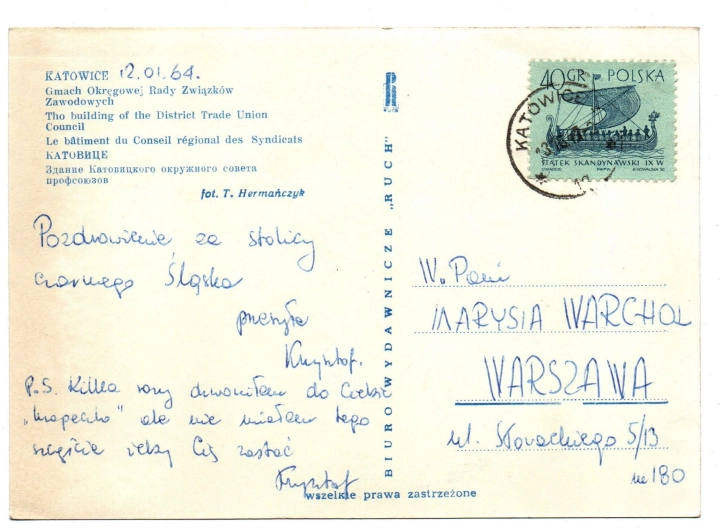 KATOWICE 12.01.64.
Gmach Okręgowej Rady Związków
Zawodowych
The building of the District Trade Union
Council
Le bâtiment du Conseil régional des Syndicats
КАТОВИЦЕ
Здание Катовицкого окружного совета
профсоюзов
fot. T. Hermańczyk
Pozdrowienie ze stolicy
czarnego Śląska
przesyła
Krzysztof.
P.S. Kilka razy dzwoniłem do Ciebie
ale nie miałem tego
szczęście żeby Cię zastać
Krzysztof
BIURO WYDAWNICZE „RUCH"
wszelkie prawa zastrzeżone
40 GR POLSKA
STATEK SKANDYNAWSKI IX W
KATOWICE
W. Pani
MARYSIA WARCHOL
WARSZAWA
ul. Słowackiego 5/13
m 180